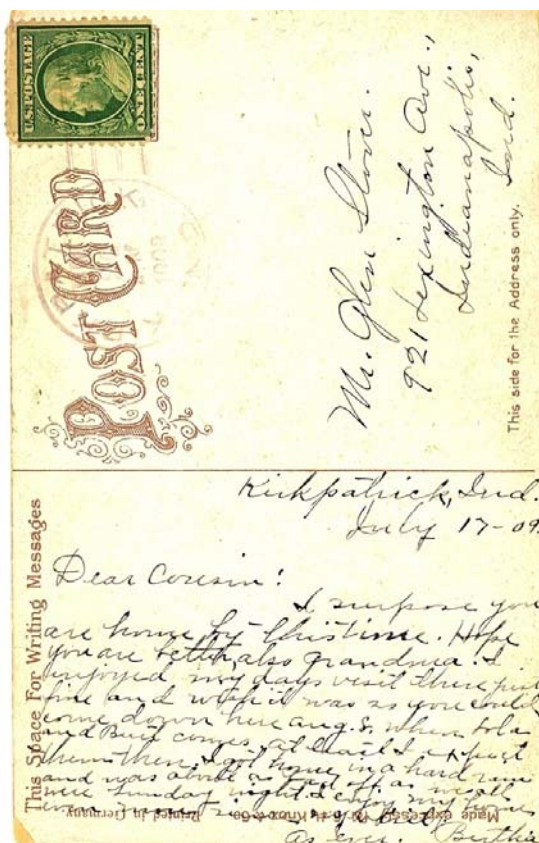 U.S. POSTAGE
ONE CENT
POST CARD
1909
Mr. Glen Stover.
921 Lexington Ave.,
Indianapolis,
Ind.
This side for the Address only.
This Space For Writing Messages
Kirkpatrick, Ind.
July 17-09
Dear Cousin:
I surpose you
are home by this time. Hope
you are better, also grandma. I
enjoyed my days visit there just
fine and wish it was so you could
come down here Aug. 8, when
and comes, at least I expect
them then. I got home in a hard rain
and was about as
were Sunday night. I enjoy my
As ever. Bertha
Made expressly for H. Knox & Co.
Printed in Germany